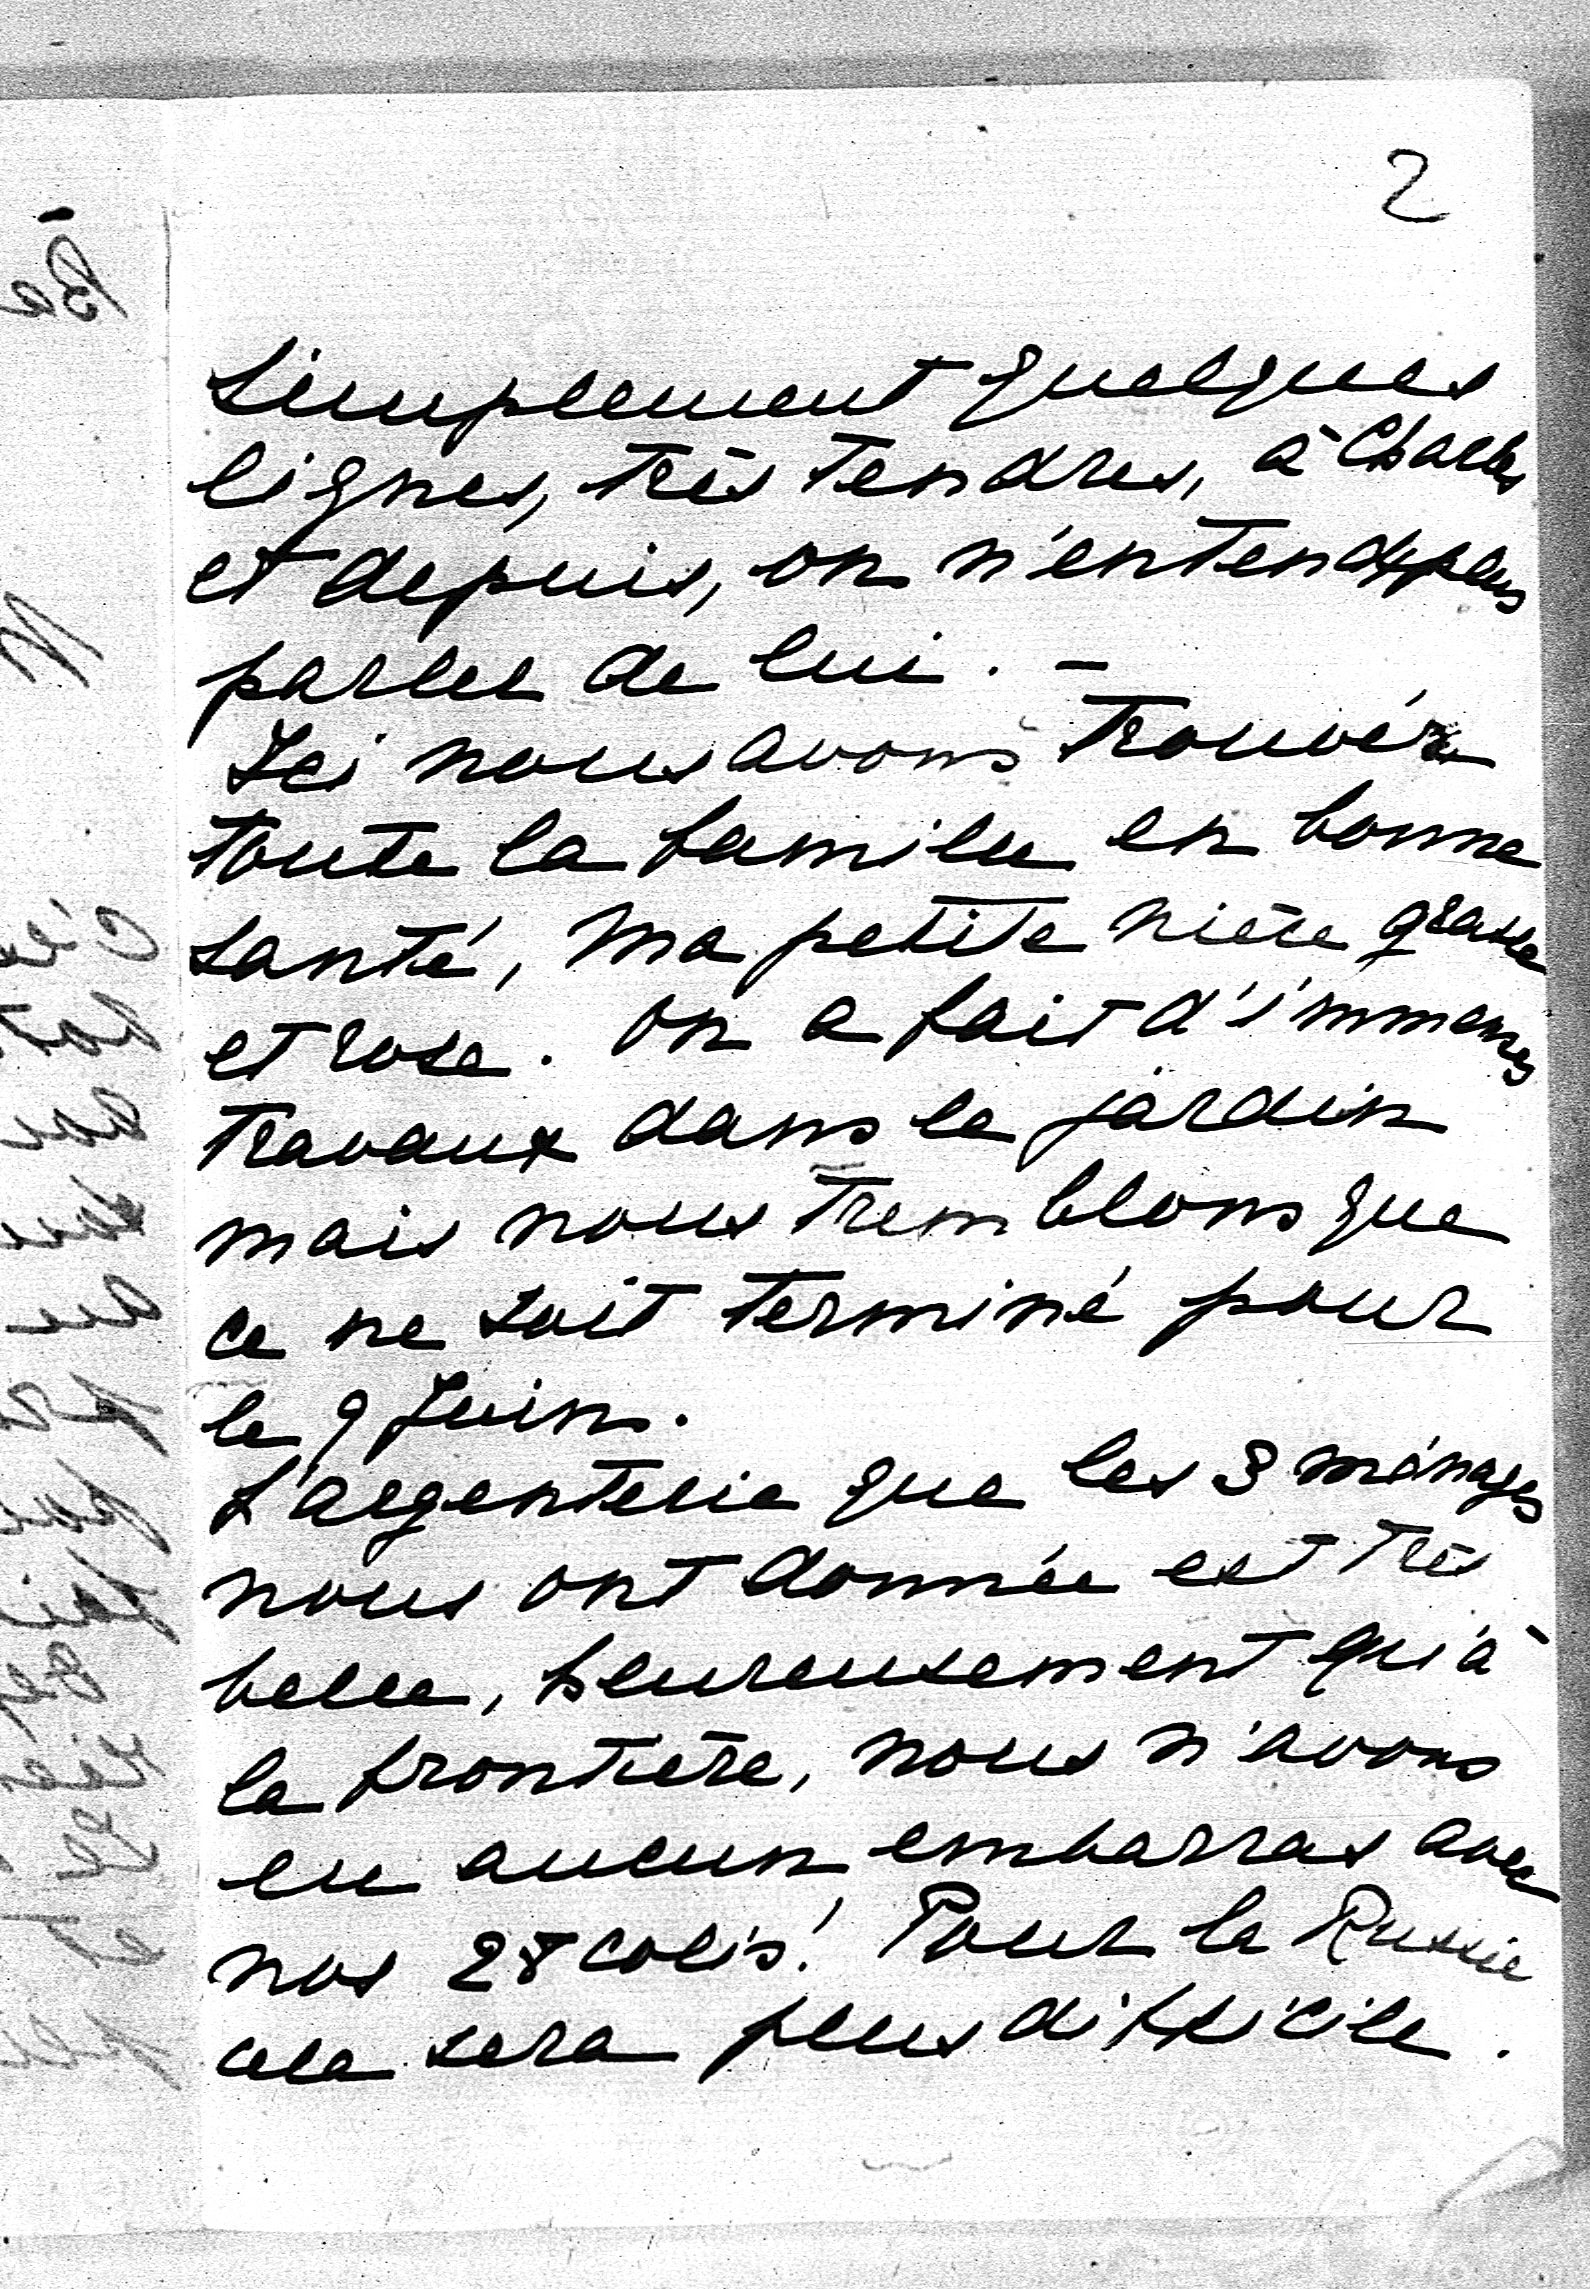 2
simplement quelques
lignes, très tendres, à Charles
et depuis, on n'entend plus
parler de lui. –
Ici nous avons trouvé
toute la famille en bonne
santé, ma petite nièce grasse
et rose. On a fait d'immenses
travaux dans le jardin
mais nous tremblons que
ce ne soit terminé pour
le 9 Juin.
L'argenterie que les 3 ménages
nous ont donnée est très
belle, heureusement qu'à
la frontière, nous n'avons
eu aucun embarras avec
nos 28 colis! Pour la Russie
cela sera plus difficile.